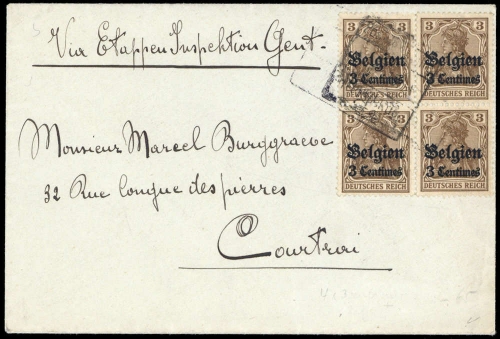 Via Etappen Inspektion Gent.
3 3 3 3
Belgien Belgien
3 Centimes 3 Centimes
DEUTSCHES REICH DEUTSCHES REICH
3 3 3 3
Belgien Belgien
3 Centimes 3 Centimes
DEUTSCHES REICH DEUTSCHES REICH
Monsieur Marcel Burggraeve
32 Rue longue des pierres
Courtrai